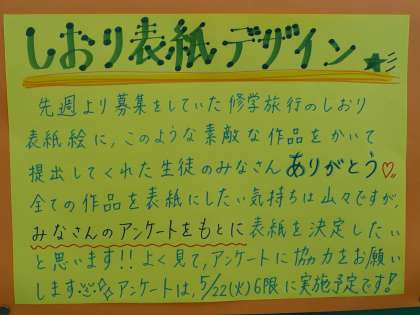 しおり表紙デザイン★
先週より募集をしていた修学旅行のしおり
表紙絵に、このような素敵な作品をかいて
提出してくれた生徒のみなさんありがとう♡。
全ての作品を表紙にしたい気持ちは山々ですが、
みなさんのアンケートをもとに表紙を決定したい
と思います!!よく見て、アンケートに協力をお願い
します☆アンケートは、5/22(火)6限に実施予定です!